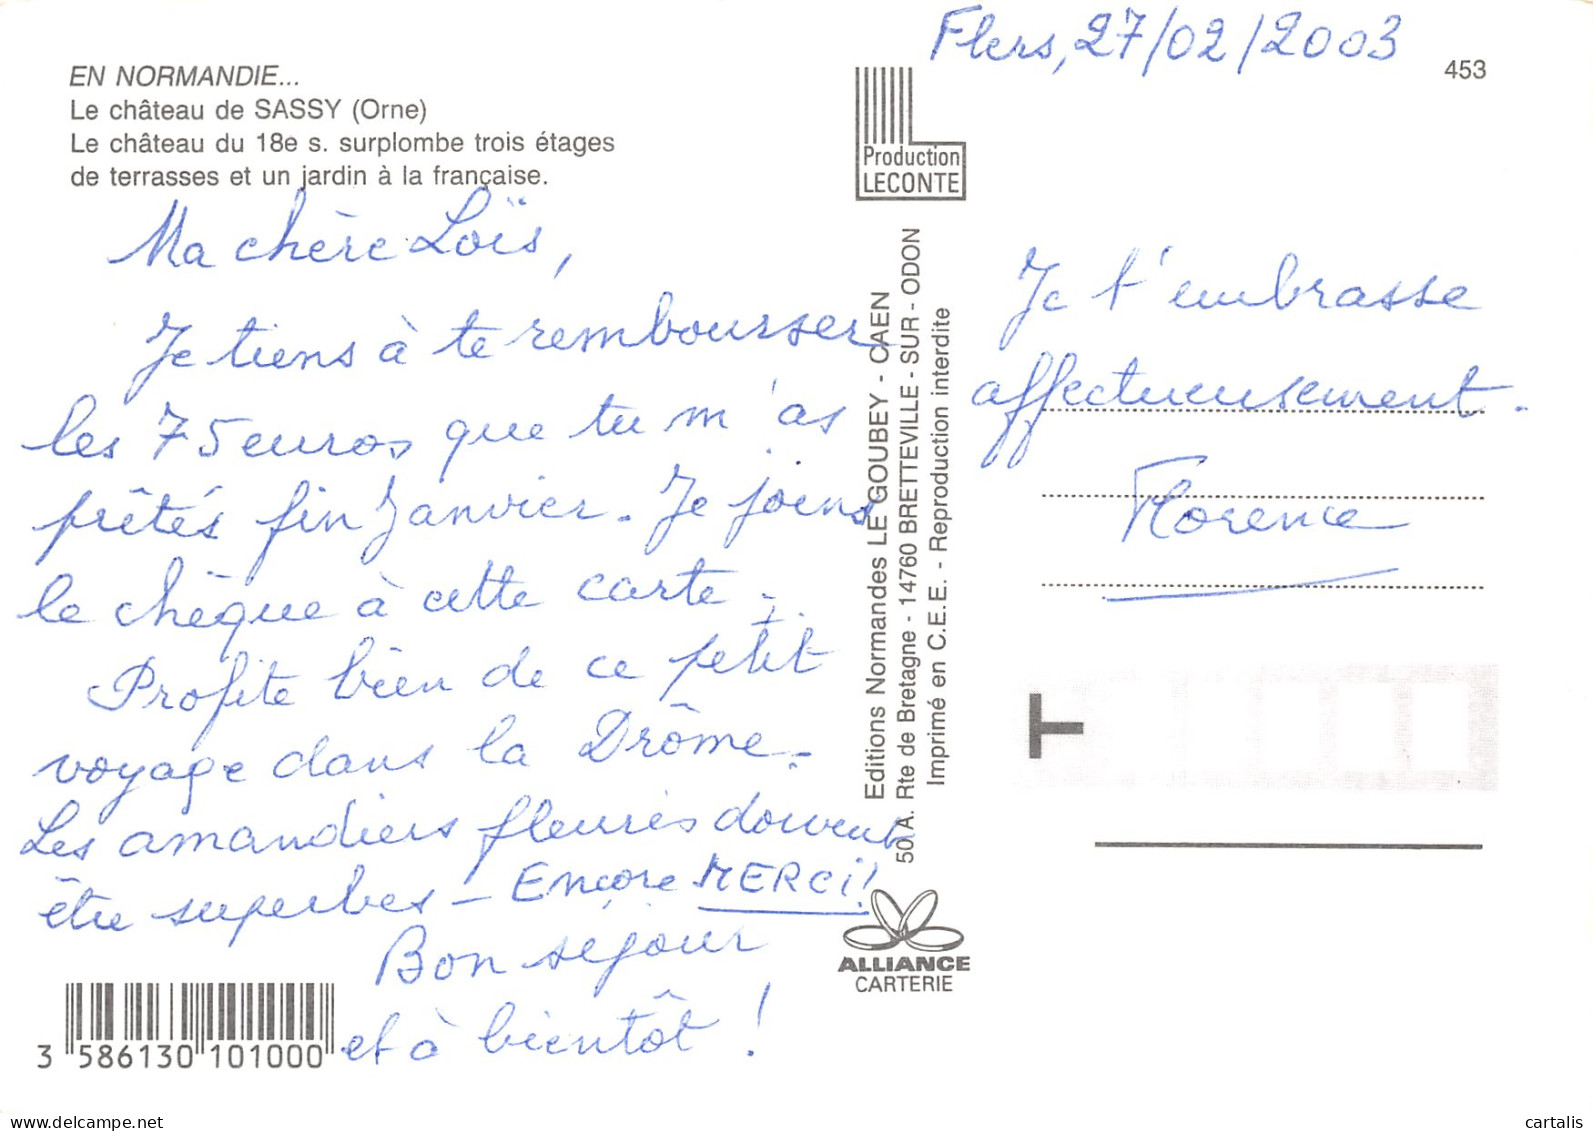 Flers, 27/02/2003
453
EN NORMANDIE...
Le château de SASSY (Orne)
Le château du 18e s. surplombe trois étages
de terrasses et un jardin à la française.
Production
LECONTE
Ma chère Loïs,
Je tiens à te rembourser
les 75 euros que tu m'as
prêtés fin Janvier. Je joins
le chèque à cette carte.
Profite bien de ce petit
voyage dans la Drôme.
Les amandiers fleuris doivent
être superbes - Encore MERCi!
Bon séjour
et à bientôt !
Editions Normandes LE GOUBEY - CAEN
50 A. Rte de Bretagne - 14760 BRETTEVILLE - SUR - ODON
Imprimé en C.E.E. - Reproduction interdite
Je t'embrasse
affectueusement.
Florence
T
ALLIANCE
CARTERIE
3 586130 101000
www.delcampe.net
cartalis